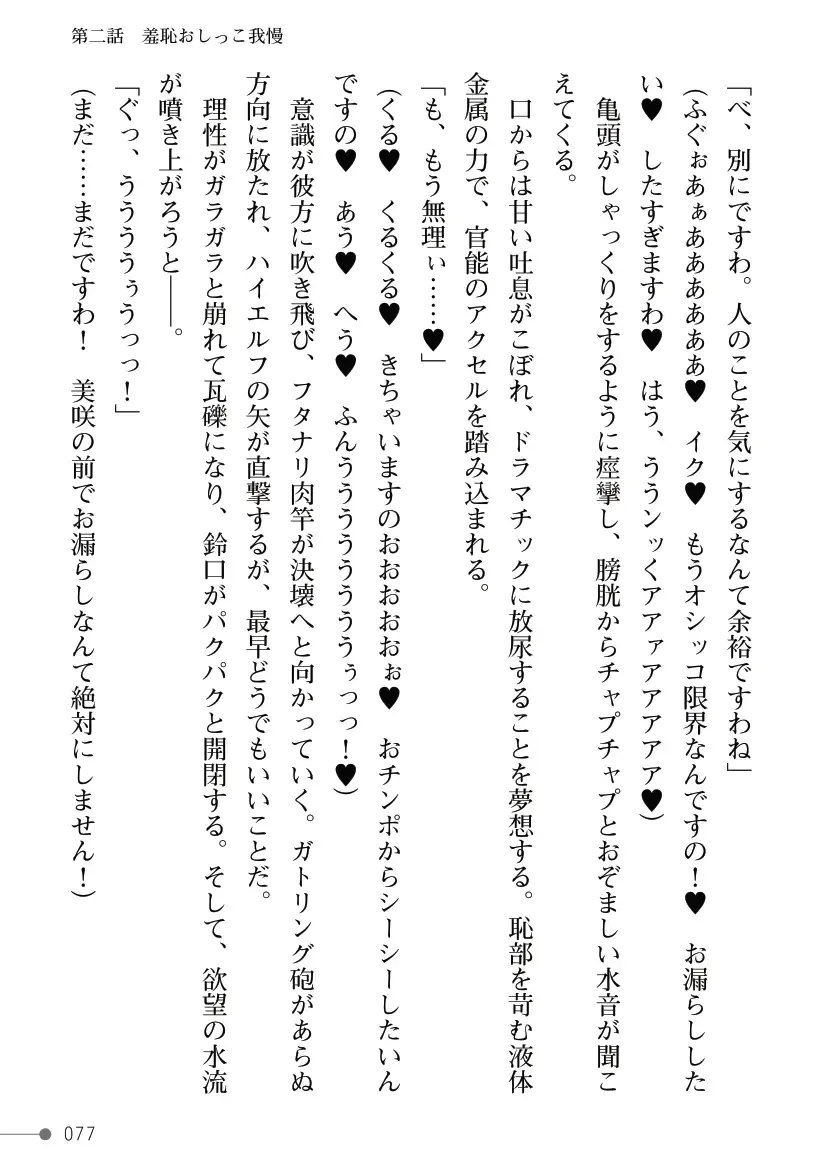 第二話　羞恥おしっこ我慢
「べ、別にですわ。人のことを気にするなんて余裕ですわね」
(ふぐぉあぁああああああ♥　イク♥　もうオシッコ限界なんですの！♥　お漏らしした
い♥　したすぎますわ♥　はう、ううンッくアアァアアアアア♥)
　亀頭がしゃっくりをするように痙攣し、膀胱からチャプチャプとおぞましい水音が聞こ
えてくる。
　口からは甘い吐息がこぼれ、ドラマチックに放尿することを夢想する。恥部を苛む液体
金属の力で、官能のアクセルを踏み込まれる。
「も、もう無理ぃ……♥」
(くる♥　くるくる♥　きちゃいますのおおおおおぉ♥　おチンポからシーシーしたいん
ですの♥　あう♥　へう♥　ふんうううううううぅっっ！♥)
　意識が彼方に吹き飛び、フタナリ肉竿が決壊へと向かっていく。ガトリング砲があらぬ
方向に放たれ、ハイエルフの矢が直撃するが、最早どうでもいいことだ。
　理性がガラガラと崩れて瓦礫になり、鈴口がパクパクと開閉する。そして、欲望の水流
が噴き上がろうと――。
「ぐっ、ううううぅうっっ！」
(まだ……まだですわ！　美咲の前でお漏らしなんて絶対にしません！)
077